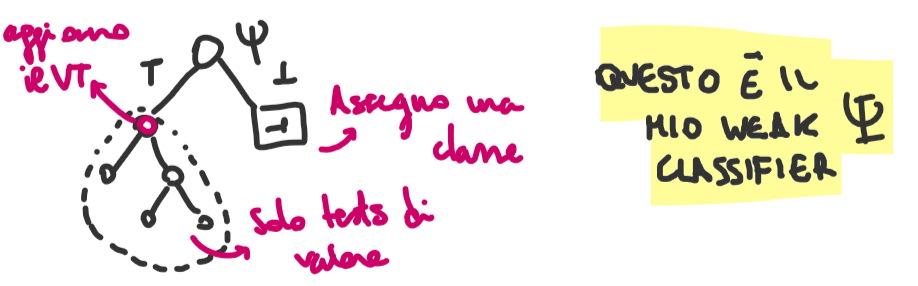 aggiorno
il VT
T
ψ
⊥
-1
Assegno una
classe
Solo tests di
valore
QUESTO È IL
MIO WEAK
CLASSIFIER
Ψ